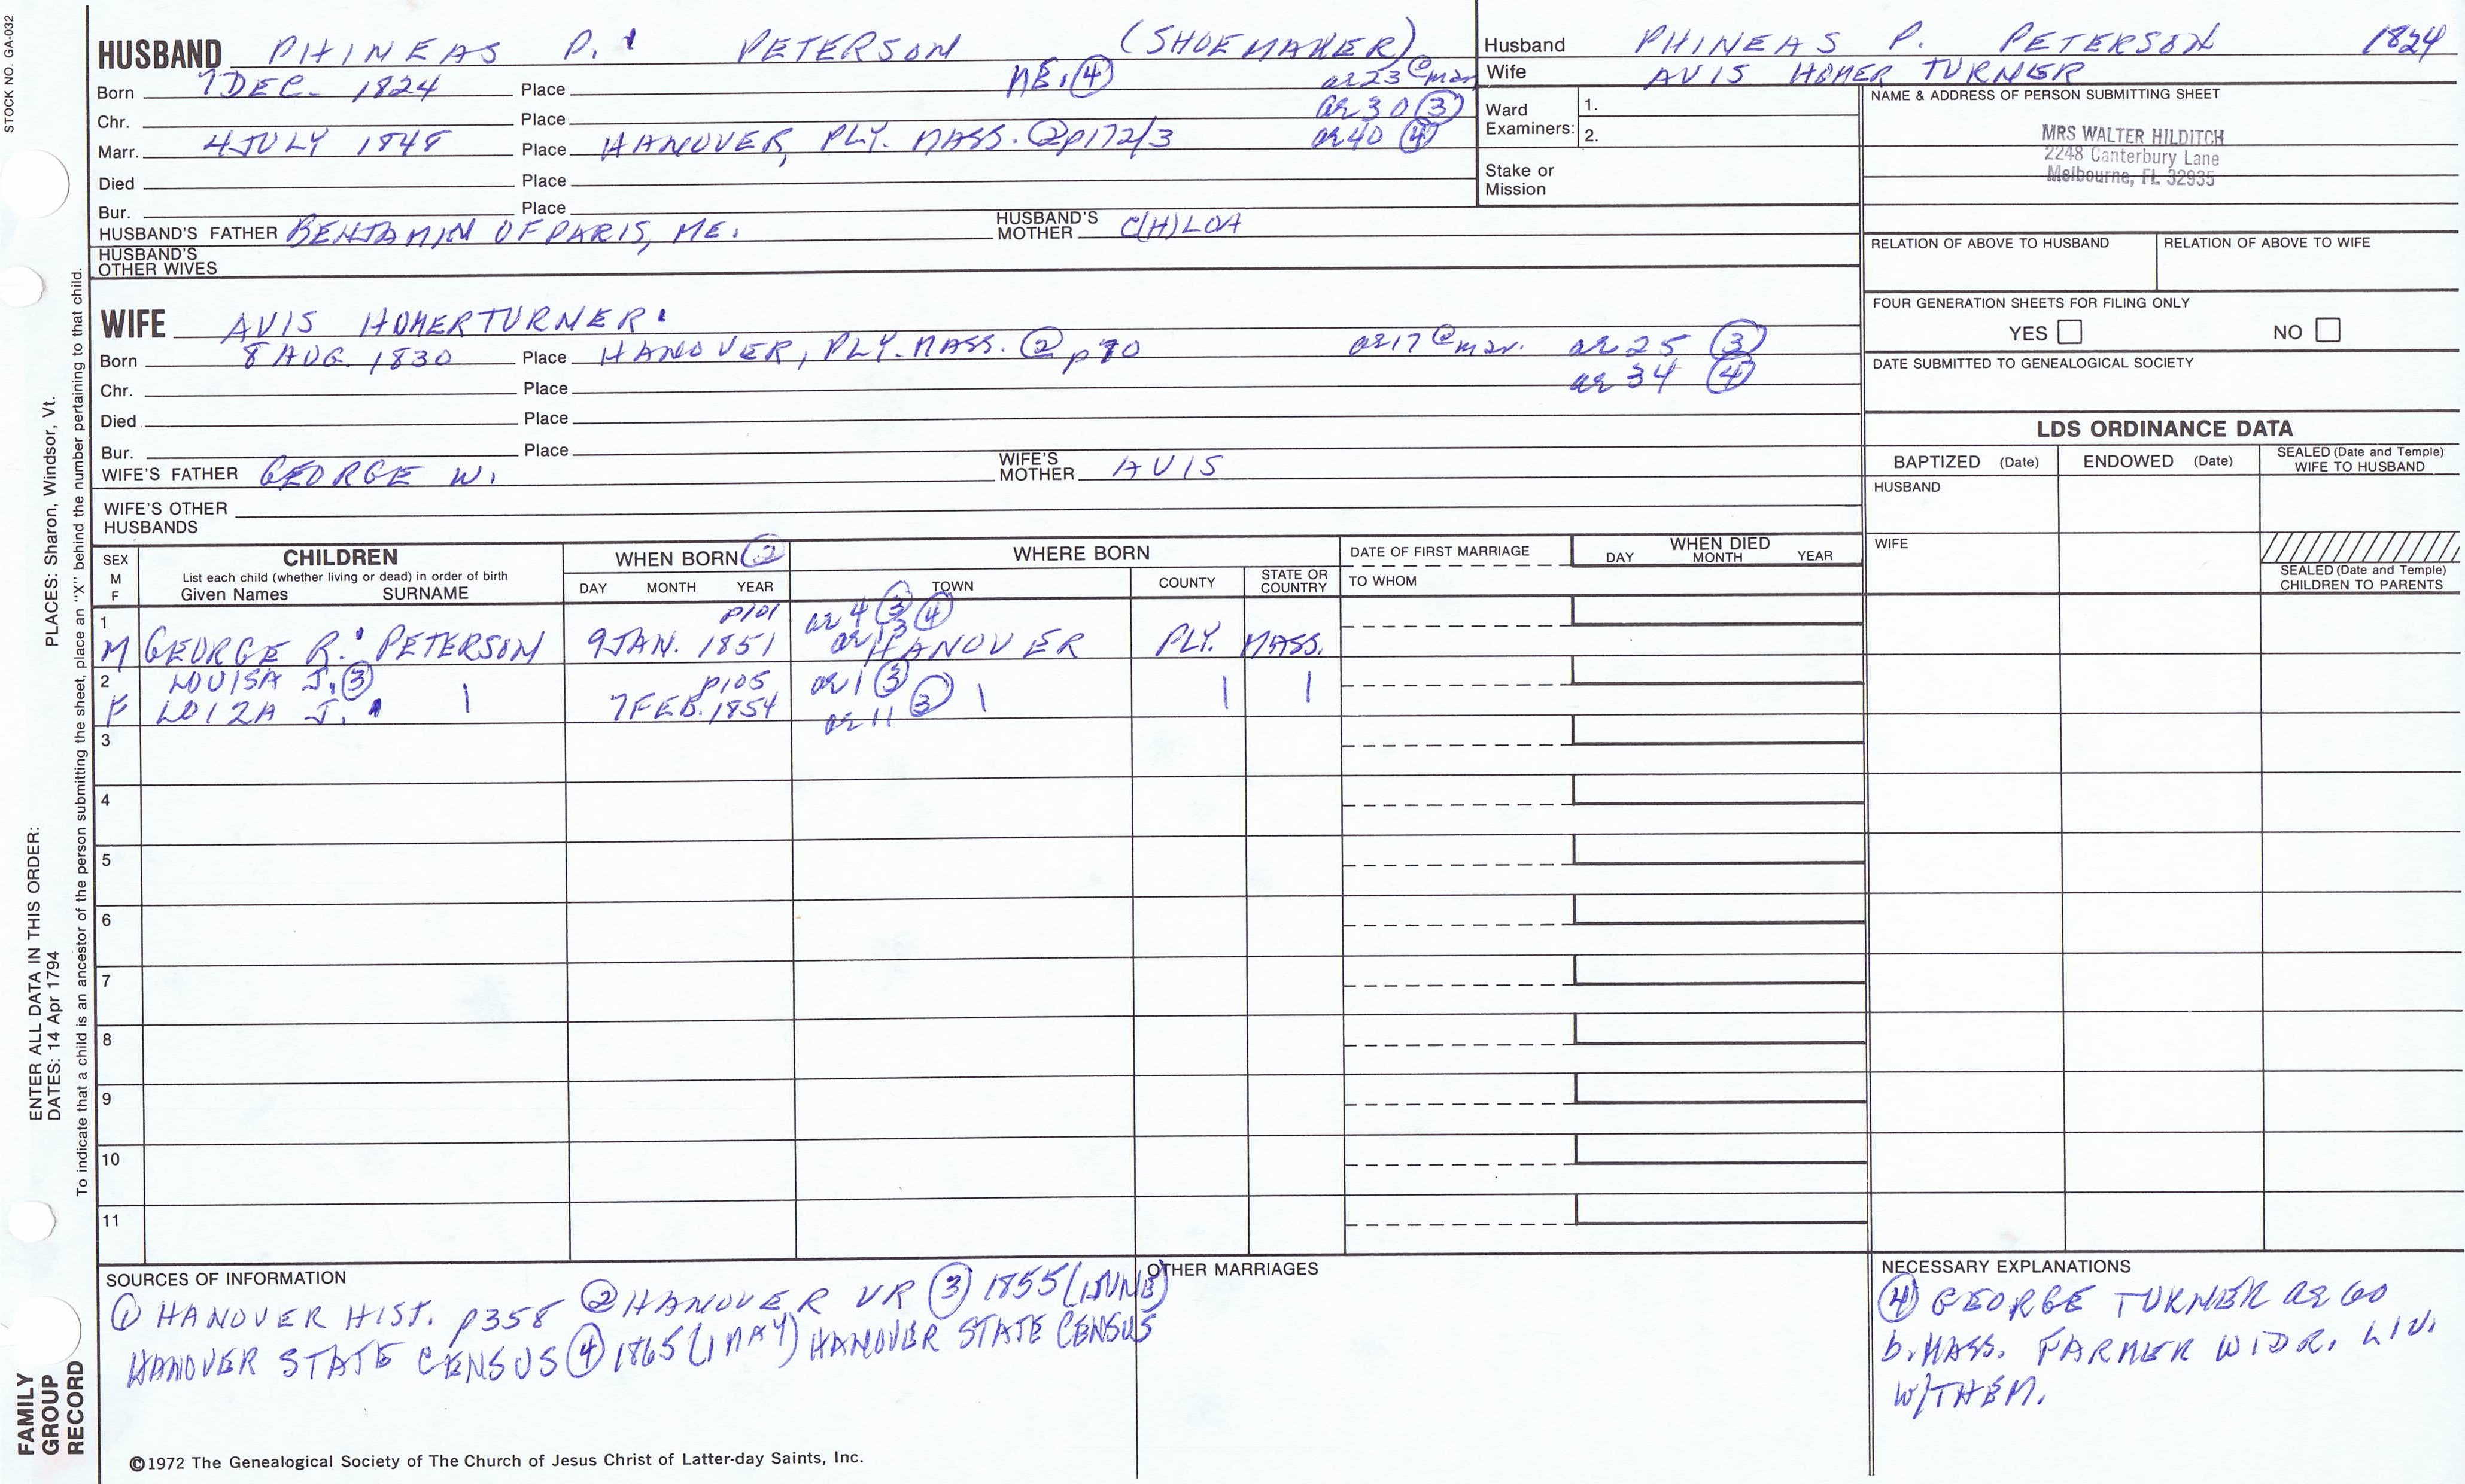 STOCK NO. GA-032
HUSBAND PHINEAS P. PETERSON (SHOEMAKER)
Born 7 DEC. 1824 Place ME. ④ ae 23 @ mar
Chr. Place ae 30 ③
Marr. 4 JULY 1848 Place HANOVER, PLY. MASS. ② p172/3 ae 40 ④
Died Place
Bur. Place
HUSBAND'S FATHER BENJAMIN OF PARIS, ME. HUSBAND'S MOTHER C(H)LOA
HUSBAND'S OTHER WIVES
WIFE AVIS HOMER TURNER
Born 8 AUG. 1830 Place HANOVER, PLY. MASS. ② p90 ae 17 @ mar. ae 25 ③
ae 34 ④
Chr. Place
Died Place
Bur. Place
WIFE'S FATHER GEORGE W. WIFE'S MOTHER AVIS
WIFE'S OTHER HUSBANDS
Husband PHINEAS P. PETERSON 1824
Wife AVIS HOMER TURNER
Ward Examiners: 1.
2.
Stake or Mission
NAME & ADDRESS OF PERSON SUBMITTING SHEET
MRS WALTER HILDITCH
2248 Canterbury Lane
Melbourne, FL 32935
RELATION OF ABOVE TO HUSBAND RELATION OF ABOVE TO WIFE
FOUR GENERATION SHEETS FOR FILING ONLY
YES NO
DATE SUBMITTED TO GENEALOGICAL SOCIETY
LDS ORDINANCE DATA
BAPTIZED (Date) ENDOWED (Date) SEALED (Date and Temple) WIFE TO HUSBAND
HUSBAND
WIFE
SEALED (Date and Temple) CHILDREN TO PARENTS
SEX M F
CHILDREN
List each child (whether living or dead) in order of birth
Given Names SURNAME
WHEN BORN ②
DAY MONTH YEAR
WHERE BORN
TOWN COUNTY STATE OR COUNTRY
DATE OF FIRST MARRIAGE
TO WHOM
WHEN DIED
DAY MONTH YEAR
1 p101 ae 4 ③ ④
M GEORGE R. PETERSON 9 JAN. 1851 ae 13 HANOVER PLY. MASS.
2 LOUISA J. ③ p105 ae 1 ③
F LOIZA J. 7 FEB. 1854 ae 11 ③
3
4
5
6
7
8
9
10
11
SOURCES OF INFORMATION
① HANOVER HIST. p358 ② HANOVER VR ③ 1855 (1 JUNE)
HANOVER STATE CENSUS ④ 1865 (1 MAY) HANOVER STATE CENSUS
OTHER MARRIAGES
NECESSARY EXPLANATIONS
④ GEORGE TURNER ae 60
b. MASS. FARMER WIDR. LIV.
W/THEM.
©1972 The Genealogical Society of The Church of Jesus Christ of Latter-day Saints, Inc.
FAMILY GROUP RECORD
ENTER ALL DATA IN THIS ORDER:
DATES: 14 Apr 1794 PLACES: Sharon, Windsor, Vt.
To indicate that a child is an ancestor of the person submitting the sheet, place an "X" behind the number pertaining to that child.